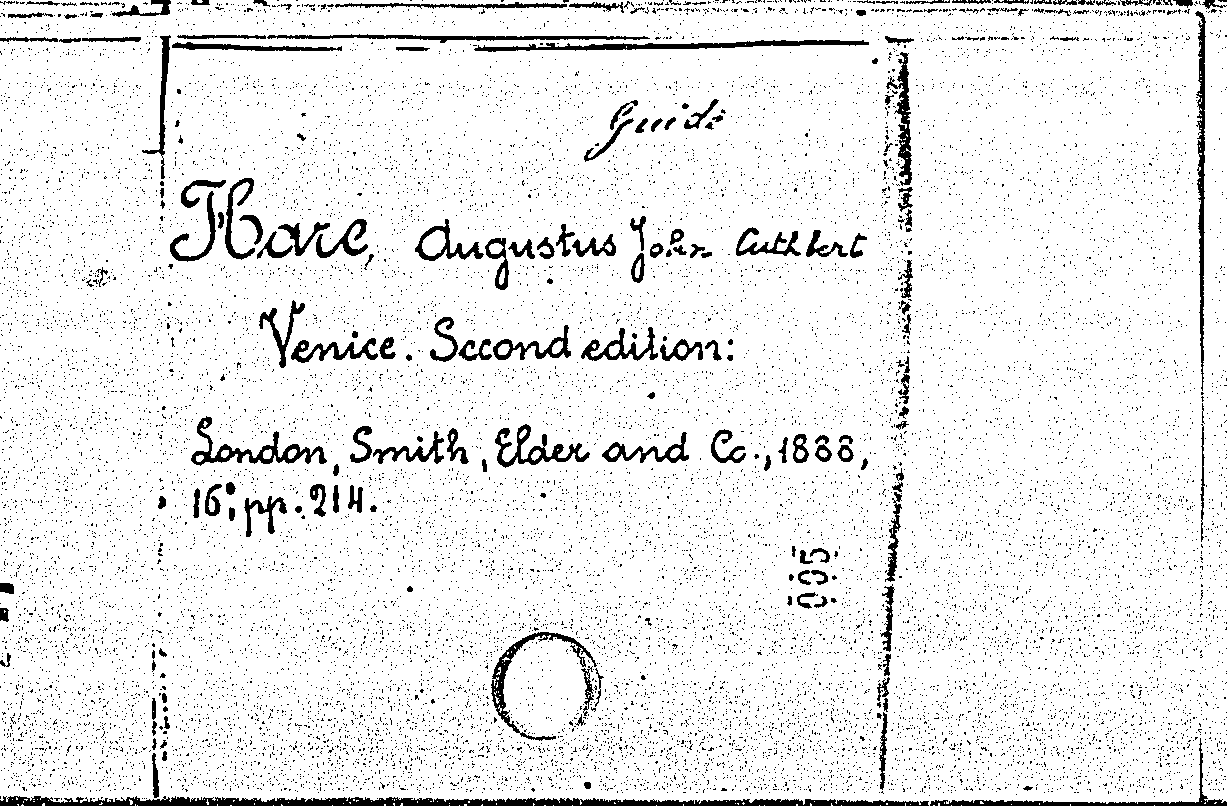 Guide
Hare, Augustus John Cuthbert
Venice. Second edition:
London, Smith, Elder and Co., 1888,
16°, pp. 214.
005